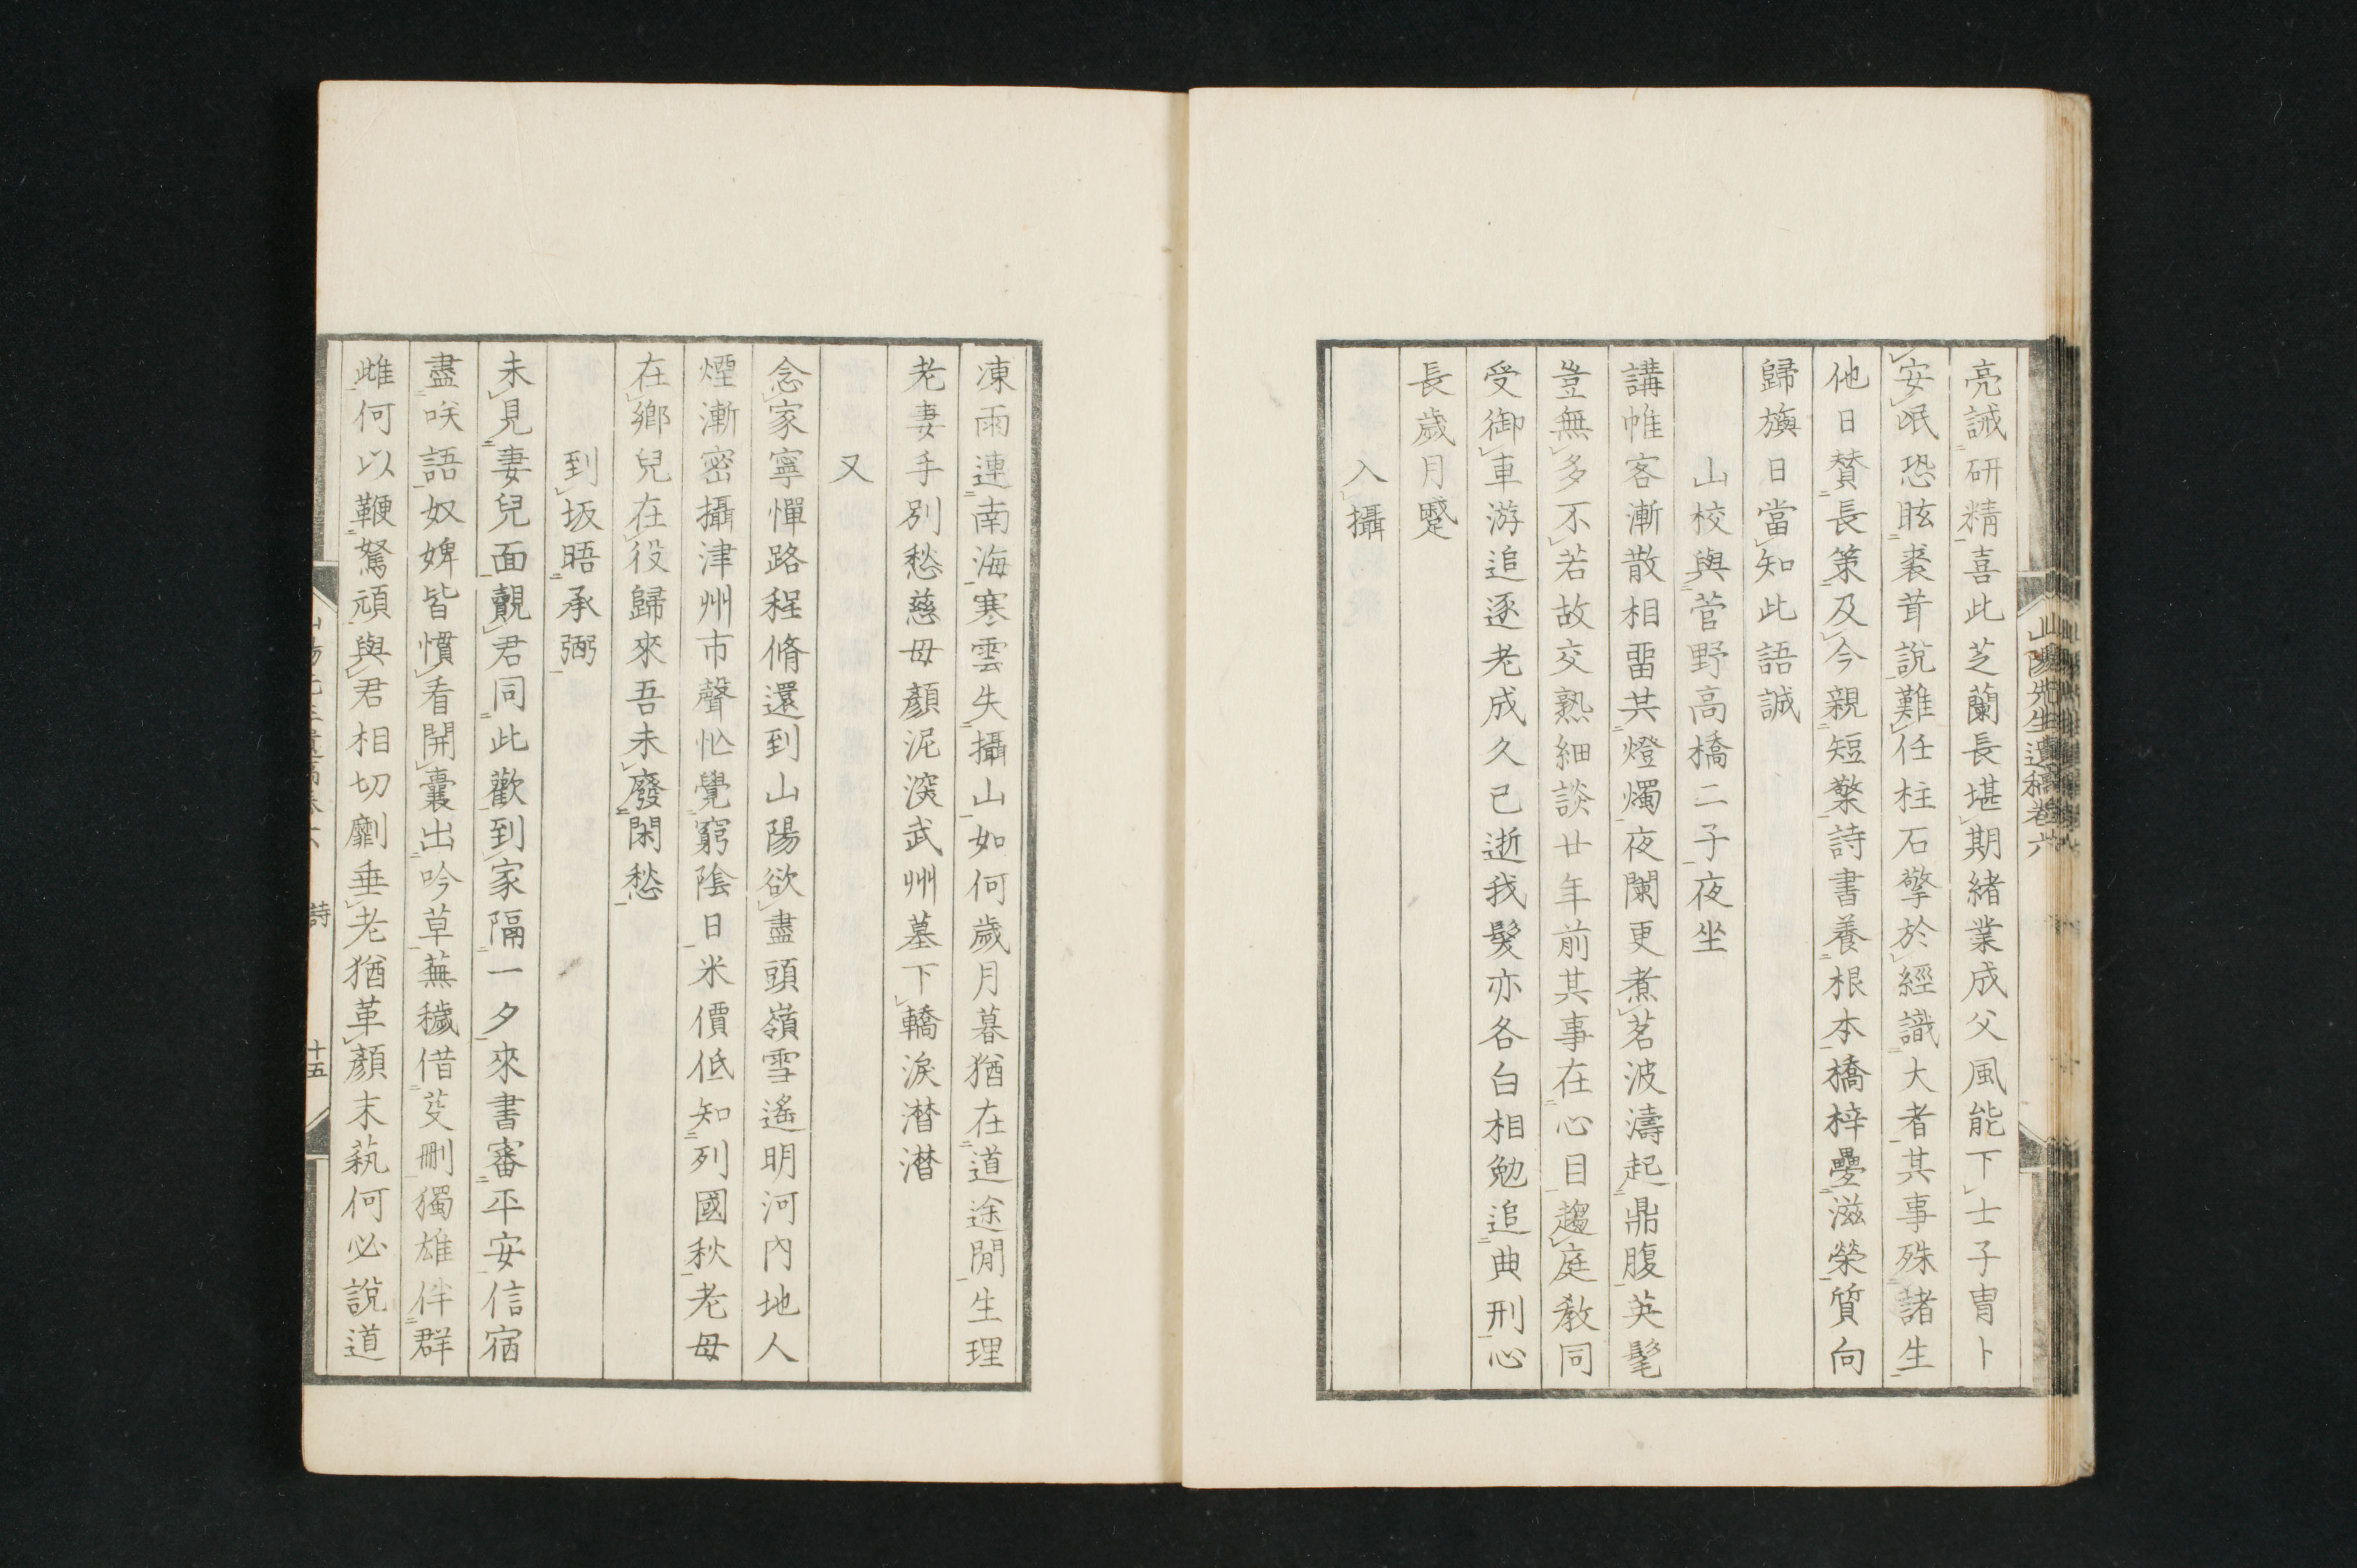 山陽先生遺稿卷六
亮誡研精喜此芝蘭長堪期緒業成父風能下士子胄卜
安氓恐眩裘茸說難任柱石擎於經識大者其事殊諸生
他日賛長策及今親短檠詩書養根本橋梓曡滋榮質向
歸旟日當知此語誠
山校與菅野高橋二子夜坐
講帷客漸散相畱其燈燭夜闌更煮茗波濤起鼎腹英髦
豈無多不若故交熟細談廿年前其事在心目趨庭教同
受御車游追逐老成久已逝我髮亦各白相勉追典刑心
長歲月蹙
入攝
凍雨連南海寒雲失攝山如何歲月暮猶在道途閒生理
老妻手別愁慈母顏泥深武州墓下轎淚潸潸
又
念家寧憚路程脩還到山陽欲盡頭嶺雪遙明河內地人
煙漸密攝津州市聲忙覺窮陰日米價低知列國秋老母
在鄉兒在役歸來吾未廢閑愁
到坂晤承弼
未見妻兒面覿君同此歡到家隔一夕來書審平安信宿
盡咲語奴婢皆慣看開囊出吟草蕪穢借芟刪獨雄伴群
雌何以鞭駑頑與君相切劘垂老猶革顏末蓺何必說道
詩
十五